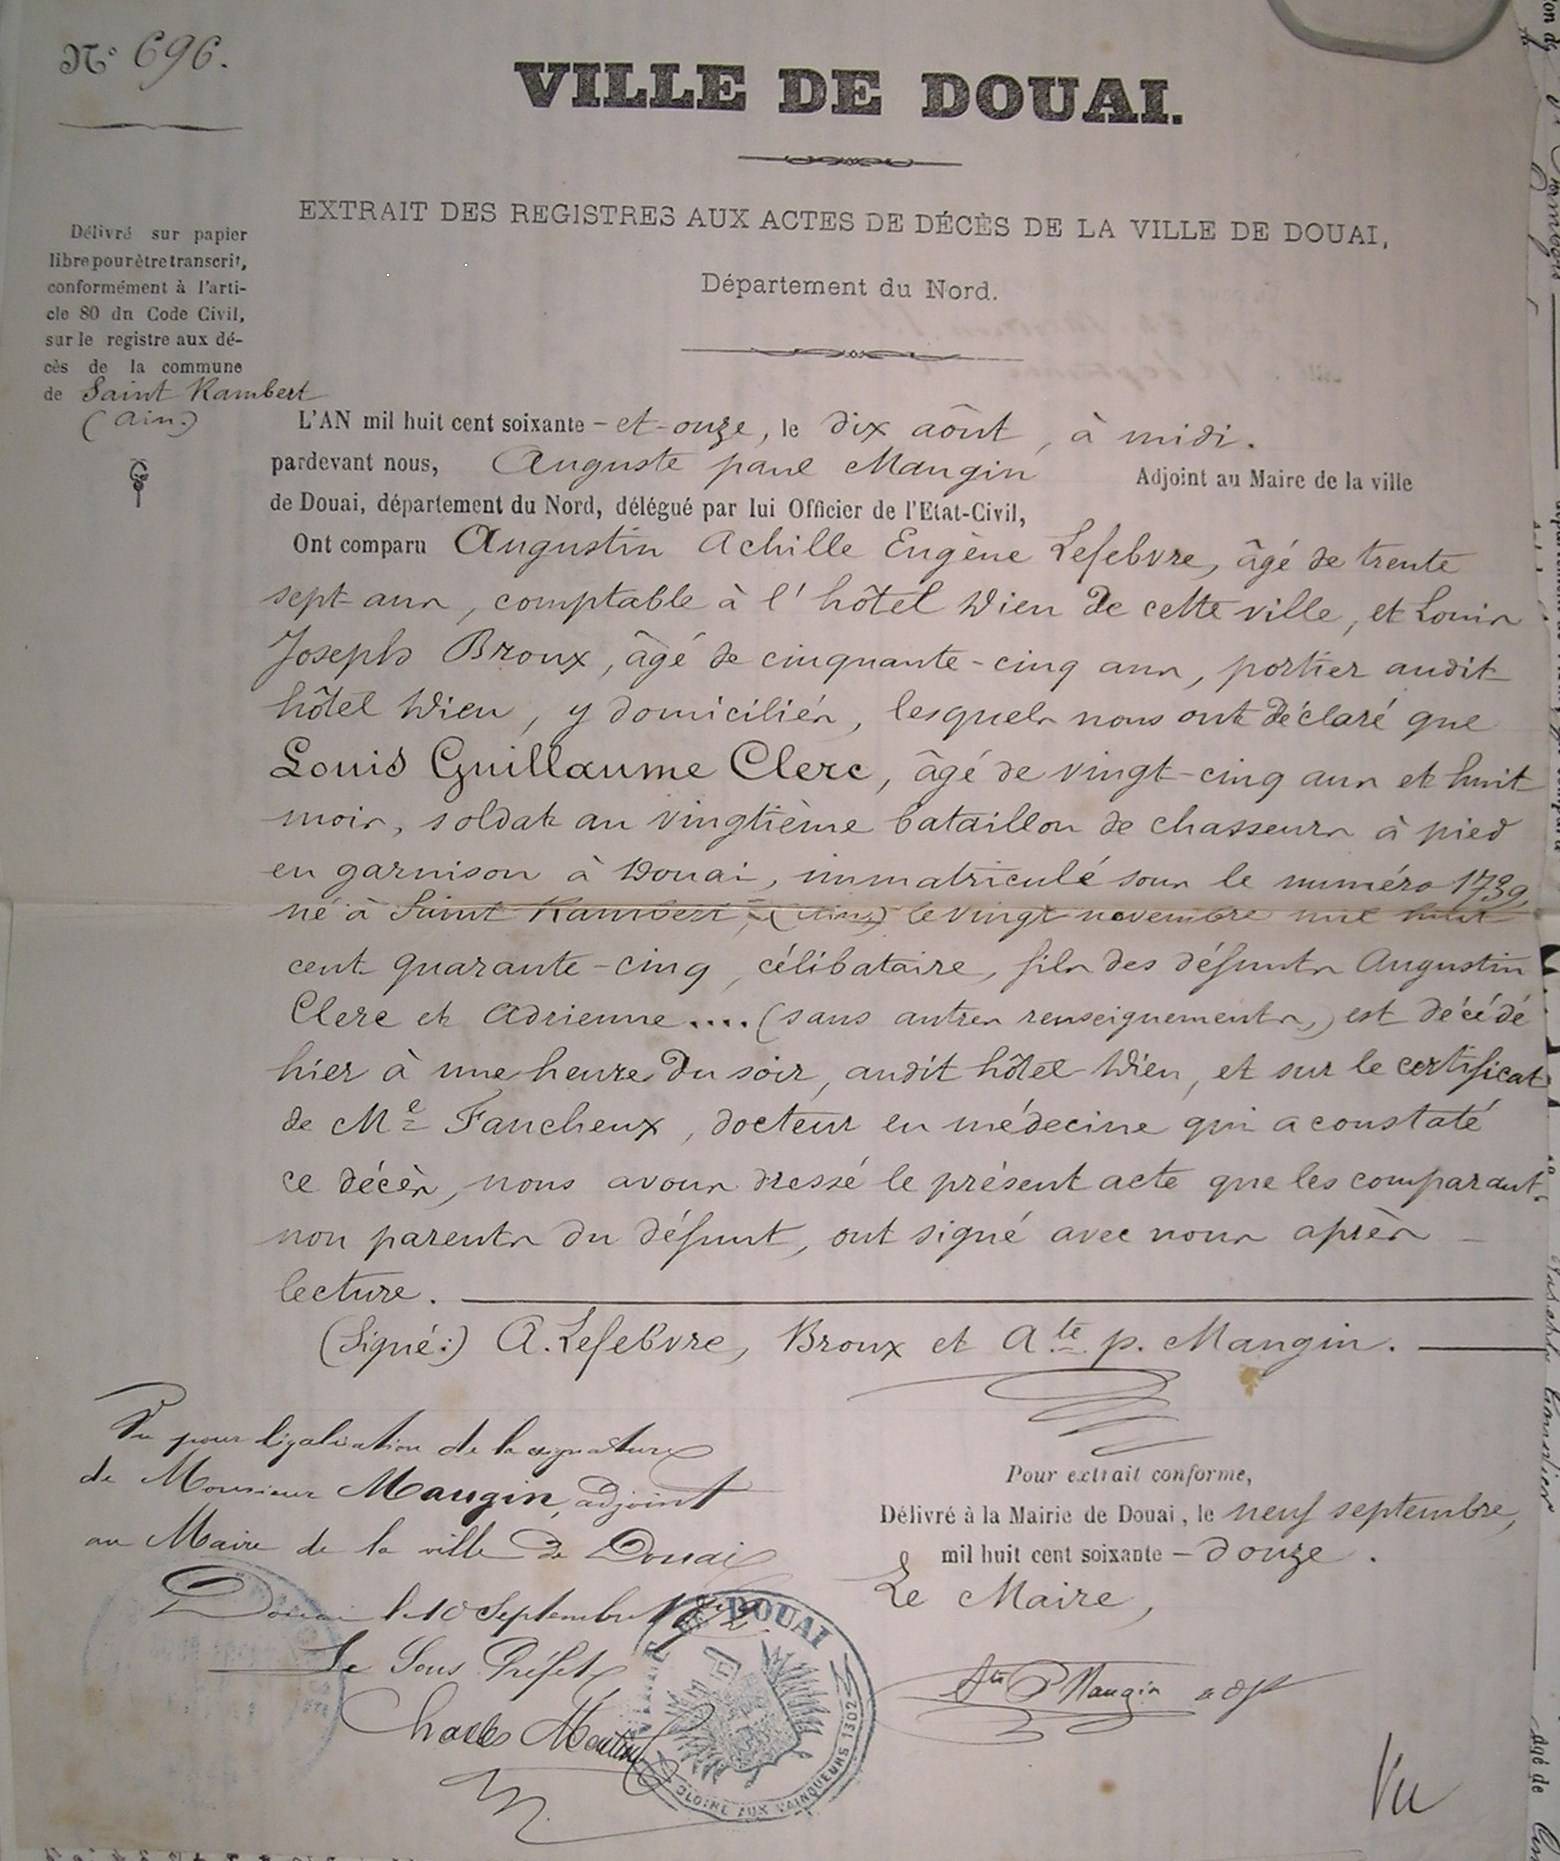 N° 696.
VILLE DE DOUAI.
EXTRAIT DES REGISTRES AUX ACTES DE DÉCÈS DE LA VILLE DE DOUAI,
Département du Nord.
Délivré sur papier
libre pour être transcrit,
conformément à l'arti-
cle 80 du Code Civil,
sur le registre aux dé-
cès de la commune
de Saint Rambert
(Ain.)
L'AN mil huit cent soixante - et - onze, le dix août, à midi.
pardevant nous, Auguste paul Mangin Adjoint au Maire de la ville
de Douai, département du Nord, délégué par lui Officier de l'Etat-Civil,
Ont comparu Augustin Achille Eugène Lefebvre, âgé de trente
sept ans, comptable à l'hôtel Dieu de cette ville, et Louis
Joseph Broux, âgé de cinquante-cinq ans, portier audit
hôtel Dieu, y domiciliés, lesquels nous ont déclaré que
Louis Guillaume Clerc, âgé de vingt-cinq ans et huit
mois, soldat au vingtième bataillon de chasseurs à pied
en garnison à Douai, immatriculé sous le numéro 1739,
né à Saint Rambert, (Ain) le vingt novembre mil huit
cent quarante-cinq, célibataire, fils des défunts Augustin
Clerc et Adrienne.... (sans autres renseignements,) est décédé
hier à une heure du soir, audit hôtel-Dieu, et sur le certificat
de Me Faucheux, docteur en médecine qui a constaté
ce décès, nous avons dressé le présent acte que les comparants
non parents du défunt, ont signé avec nous après
lecture.
(Signé:) A. Lefebvre, Broux et Ate p. Mangin.
Vu pour légalisation de la signature
de Monsieur Mangin, adjoint
au Maire de la ville de Douai
Douai le 10 Septembre 1872.
Le Sous Préfet,
Charles
Pour extrait conforme,
Délivré à la Mairie de Douai, le neuf septembre,
mil huit cent soixante - douze.
Le Maire,
Ate P Mangin adjt
MAIRIE DE DOUAI
GLOIRE AUX VAINQUEURS 1302
Vu